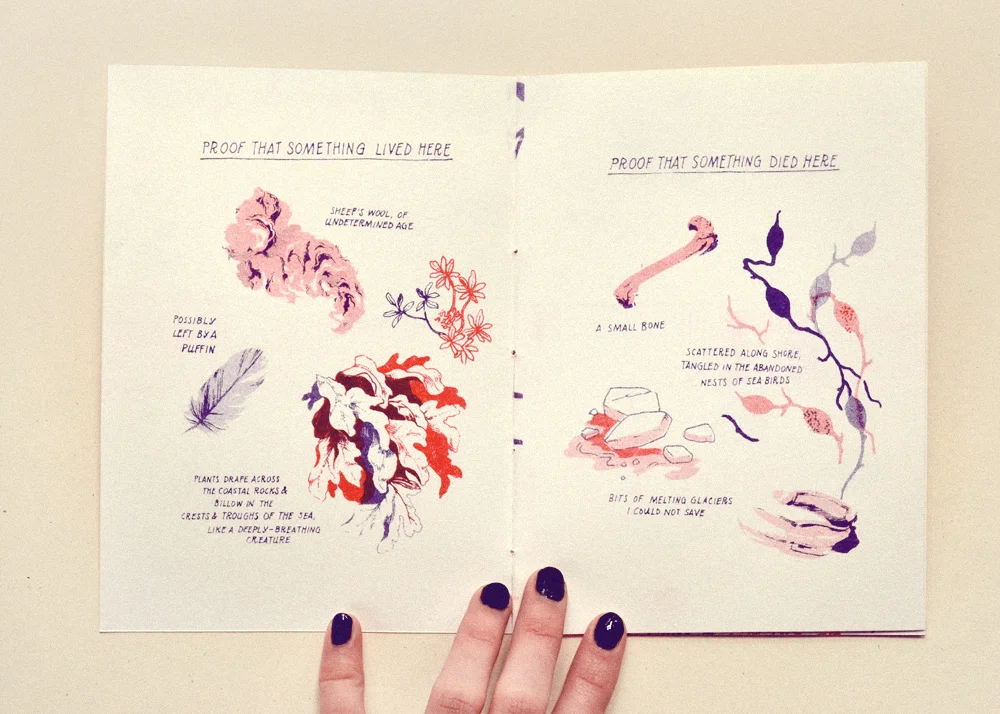 PROOF THAT SOMETHING LIVED HERE
SHEEP'S WOOL, OF
UNDETERMINED AGE
POSSIBLY
LEFT BY A
PUFFIN
PLANTS DRAPE ACROSS
THE COASTAL ROCKS &
BILLOW IN THE
CRESTS & TROUGHS OF THE SEA,
LIKE A DEEPLY-BREATHING
CREATURE
PROOF THAT SOMETHING DIED HERE
A SMALL BONE
SCATTERED ALONG SHORE,
TANGLED IN THE ABANDONED
NESTS OF SEA BIRDS
BITS OF MELTING GLACIERS
I COULD NOT SAVE